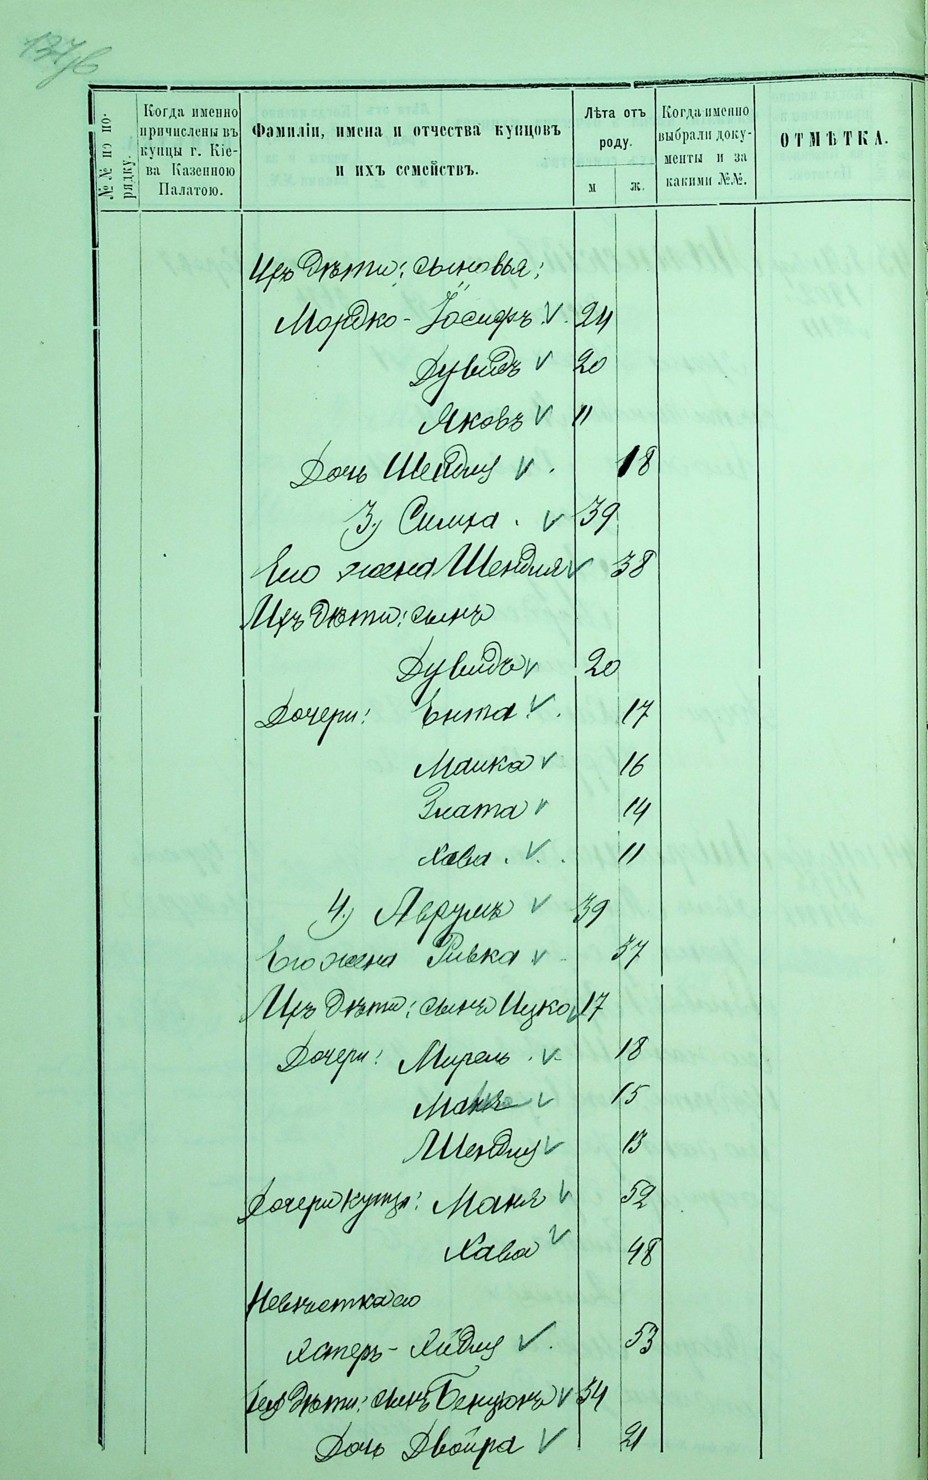 137об
№№ по порядку.
Когда именно причислены въ купцы г. Кіева Казенною Палатою.
Фамиліи, имена и отчества купцовъ и ихъ семействъ.
Лѣта отъ роду.
м
ж.
Когда именно выбрали документы и за какими №№.
ОТМѢТКА.
Ихъ дѣти: сыновья:
Мордко-Іосифъ 24
Дувидъ 20
Яковъ 11
Дочь Шейндля 18
3) Симха 39
Его жена Шендля 38
Ихъ дѣти: сынъ
Дувидъ 20
Дочери: Ента 17
Малка 16
Злата 14
Хава 11
4) Аврумъ 39
Его жена Ривка 37
Ихъ дѣти: сынъ Ицко 17
Дочери: Мирель 18
Маня 15
Шендля 13
Дочери купца: Маня 52
Хава 48
Невѣстка его
Эстеръ-Хидля 53
Ея дѣти: сынъ Бенціонъ 34
Дочь Двойра 21